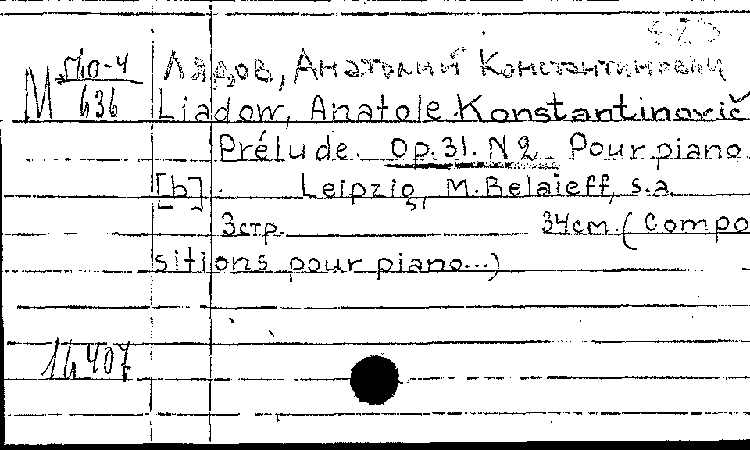 Лядов, Анатолий Константинович
Liadow, Anatole Konstantinovič
Prélude. Op.31. N2. Pour piano.
[b]. Leipzig, M. Belaieff, s.a.
3стр. 34cm. (Compo
sitions pour piano...)
M
636